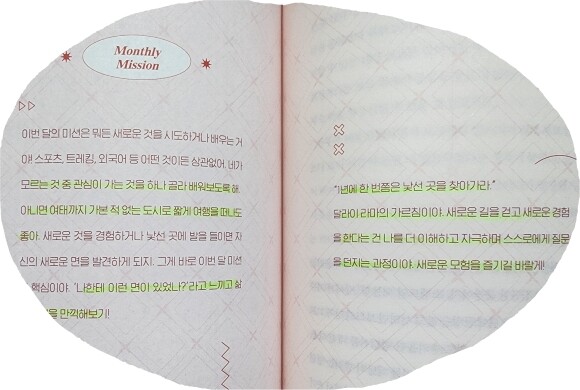 Monthly
Mission
이번 달의 미션은 뭐든 새로운 것을 시도하거나 배우는 거
야! 스포츠, 트레킹, 외국어 등 어떤 것이든 상관없어. 네가
모르는 것 중 관심이 가는 것을 하나 골라 배워보도록 해.
아니면 여태까지 가본 적 없는 도시로 짧게 여행을 떠나도
좋아. 새로운 것을 경험하거나 낯선 곳에 발을 들이면 자
신의 새로운 면을 발견하게 되지. 그게 바로 이번 달 미션
핵심이야. '나한테 이런 면이 있었나?'라고 느끼고 삶
을 만끽해보기!
"1년에 한 번쯤은 낯선 곳을 찾아가라."
달라이 라마의 가르침이야. 새로운 길을 걷고 새로운 경험
을 한다는 건 나를 더 이해하고 자극하며 스스로에게 질문
을 던지는 과정이야. 새로운 모험을 즐기길 바랄게!